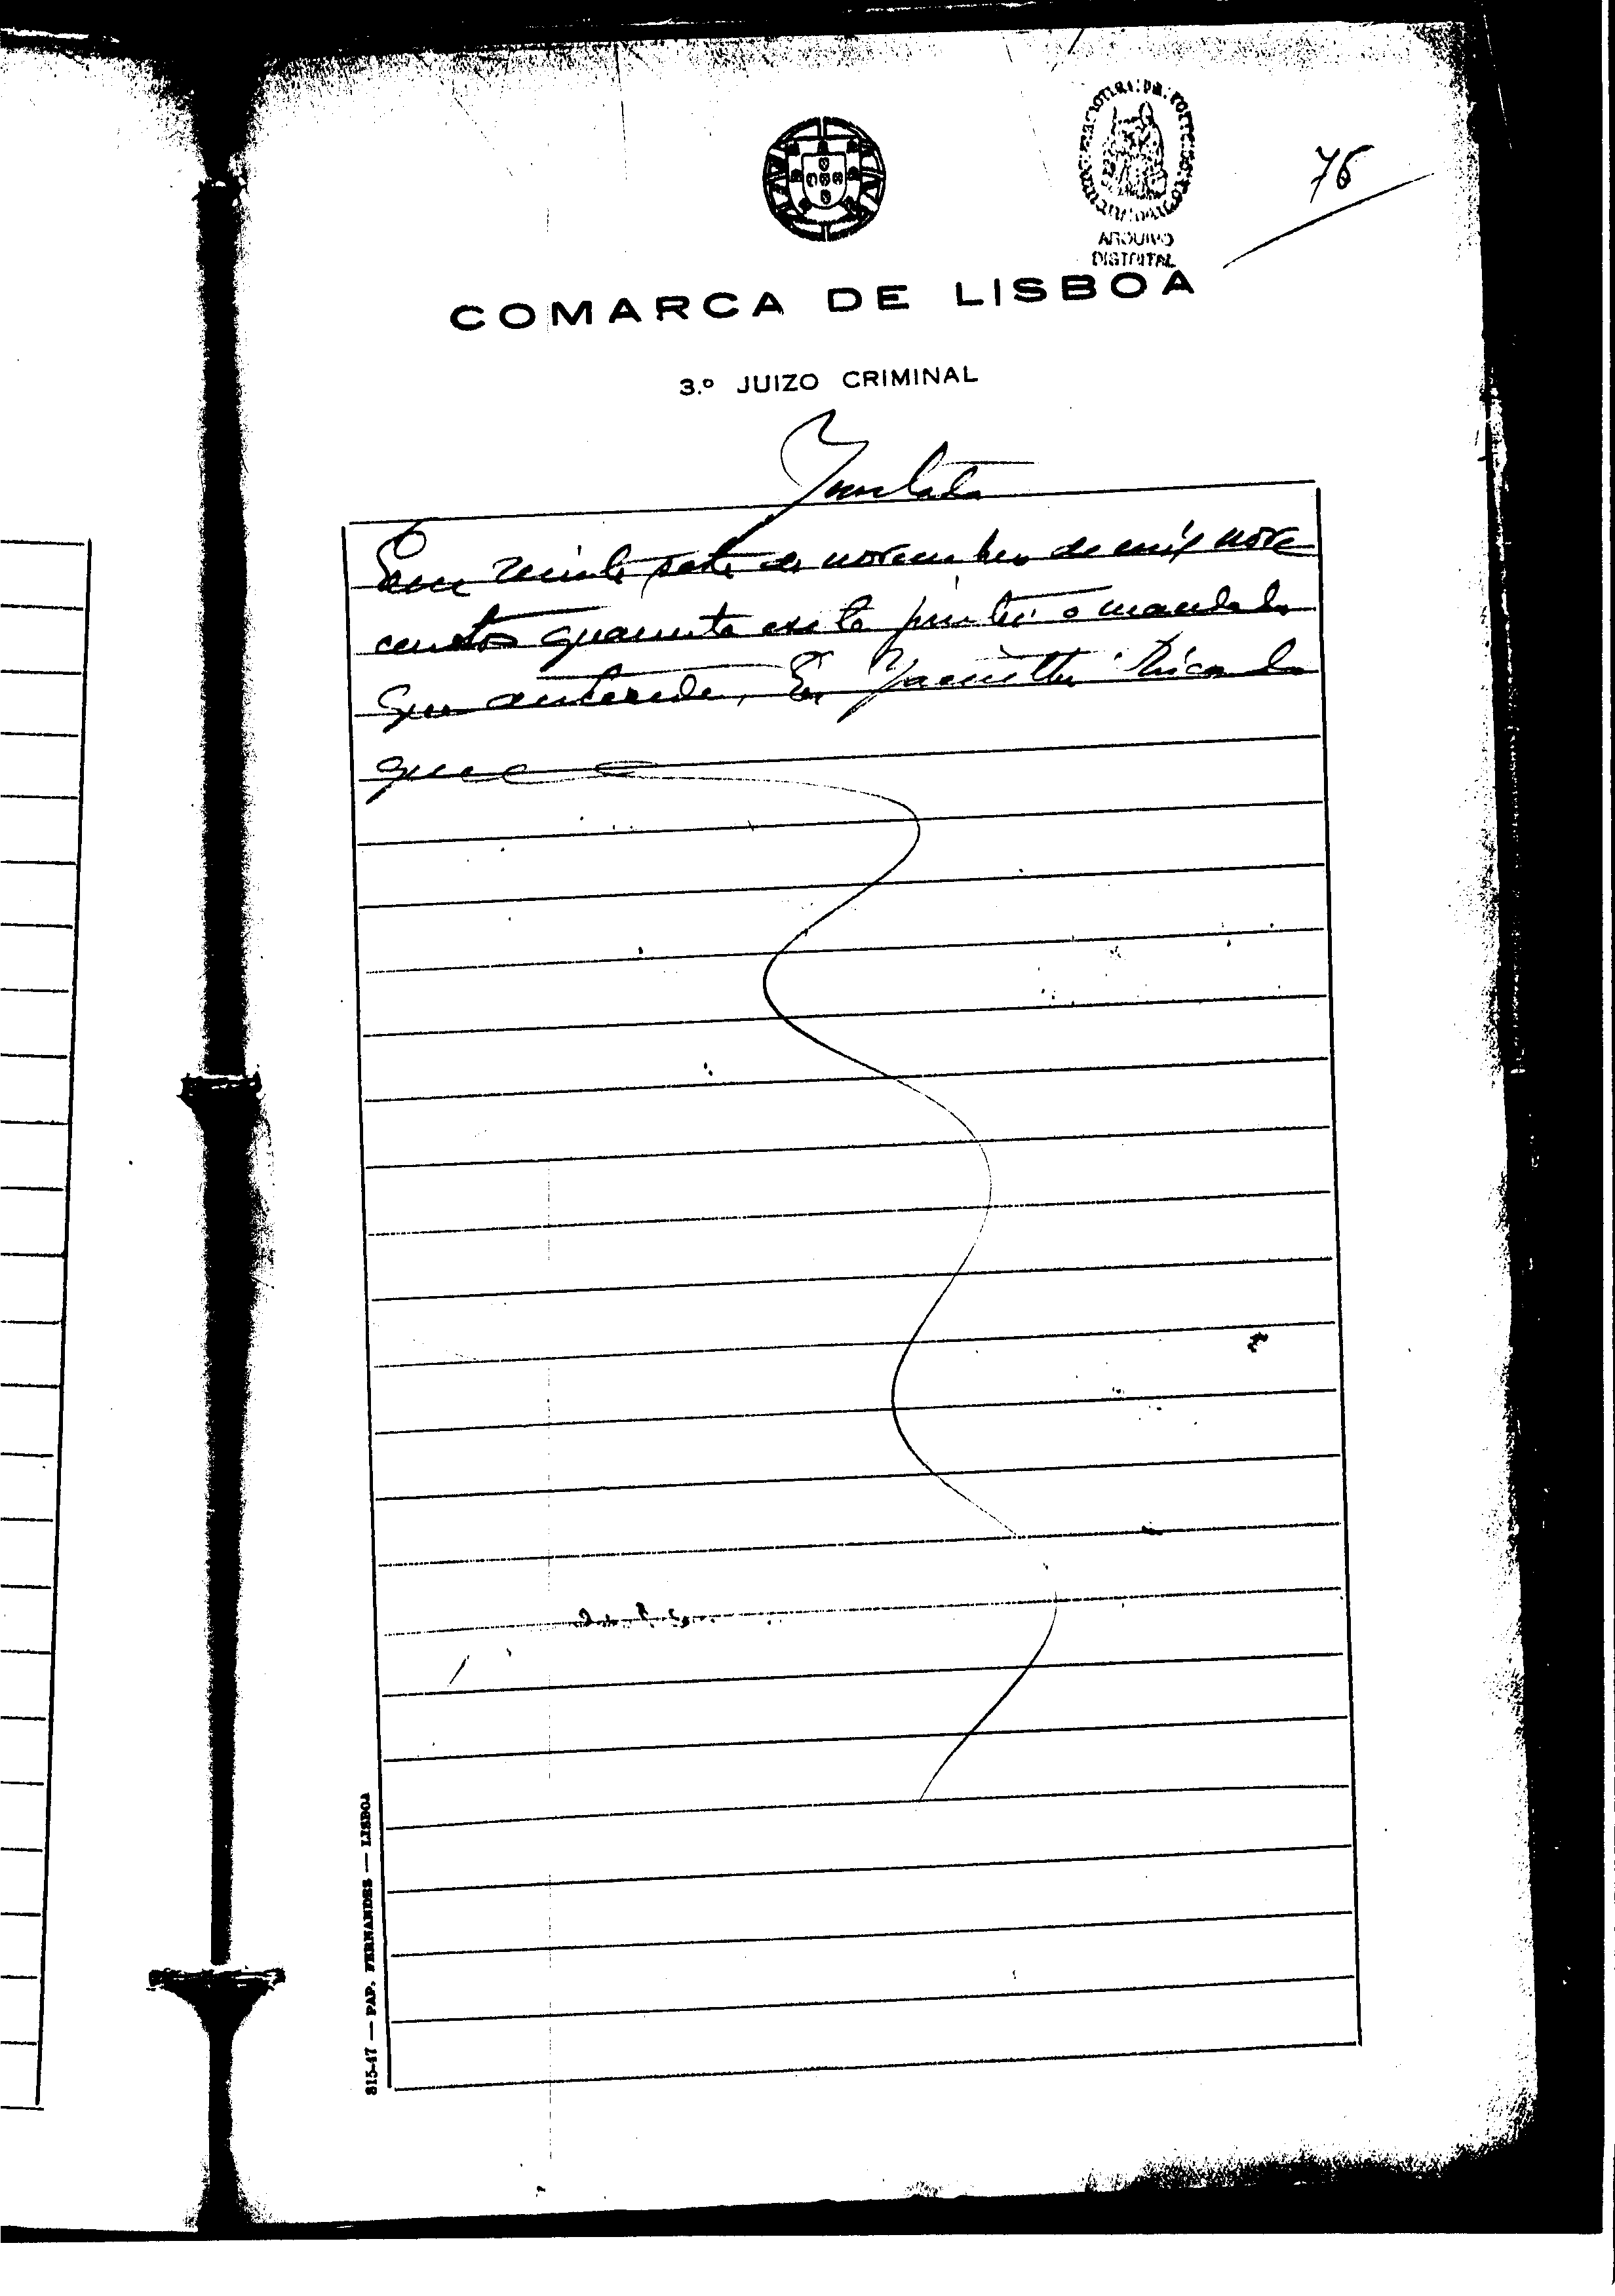 76
ARQUIVO
DISTRITAL
COMARCA DE LISBOA
3.º JUIZO CRIMINAL
Juntada
Em vinte sete de novembro de mil nove
centos quarenta oito juntei o mandado
que antecede, Eu
que
815-47 — PAP. FERNANDES — LISBOA